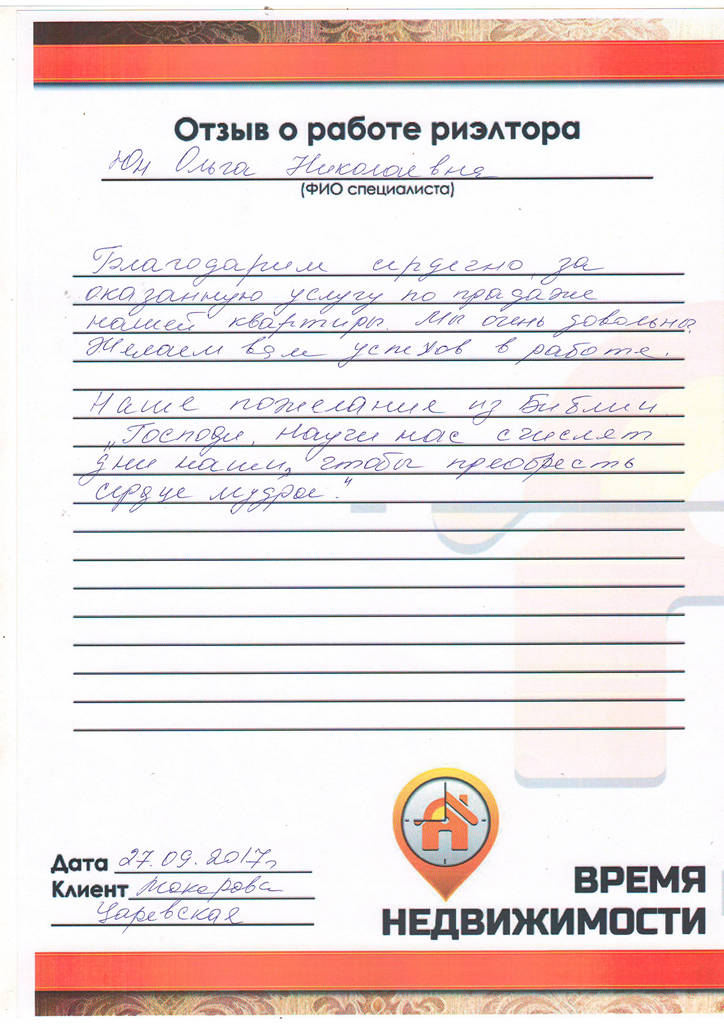 Отзыв о работе риэлтора
Юн Ольга Николаевна
(ФИО специалиста)
Благодарим сердечно за
оказанную услугу по продаже
нашей квартиры. Мы очень довольны.
Желаем вам успехов в работе.
Наше пожелание из Библии
„Господи, научи нас счислят
дни наши, чтобы преобресть
сердце мудрое."
Дата 27.09.2017г.
Клиент Макарова
Царевская
ВРЕМЯ
НЕДВИЖИМОСТИ